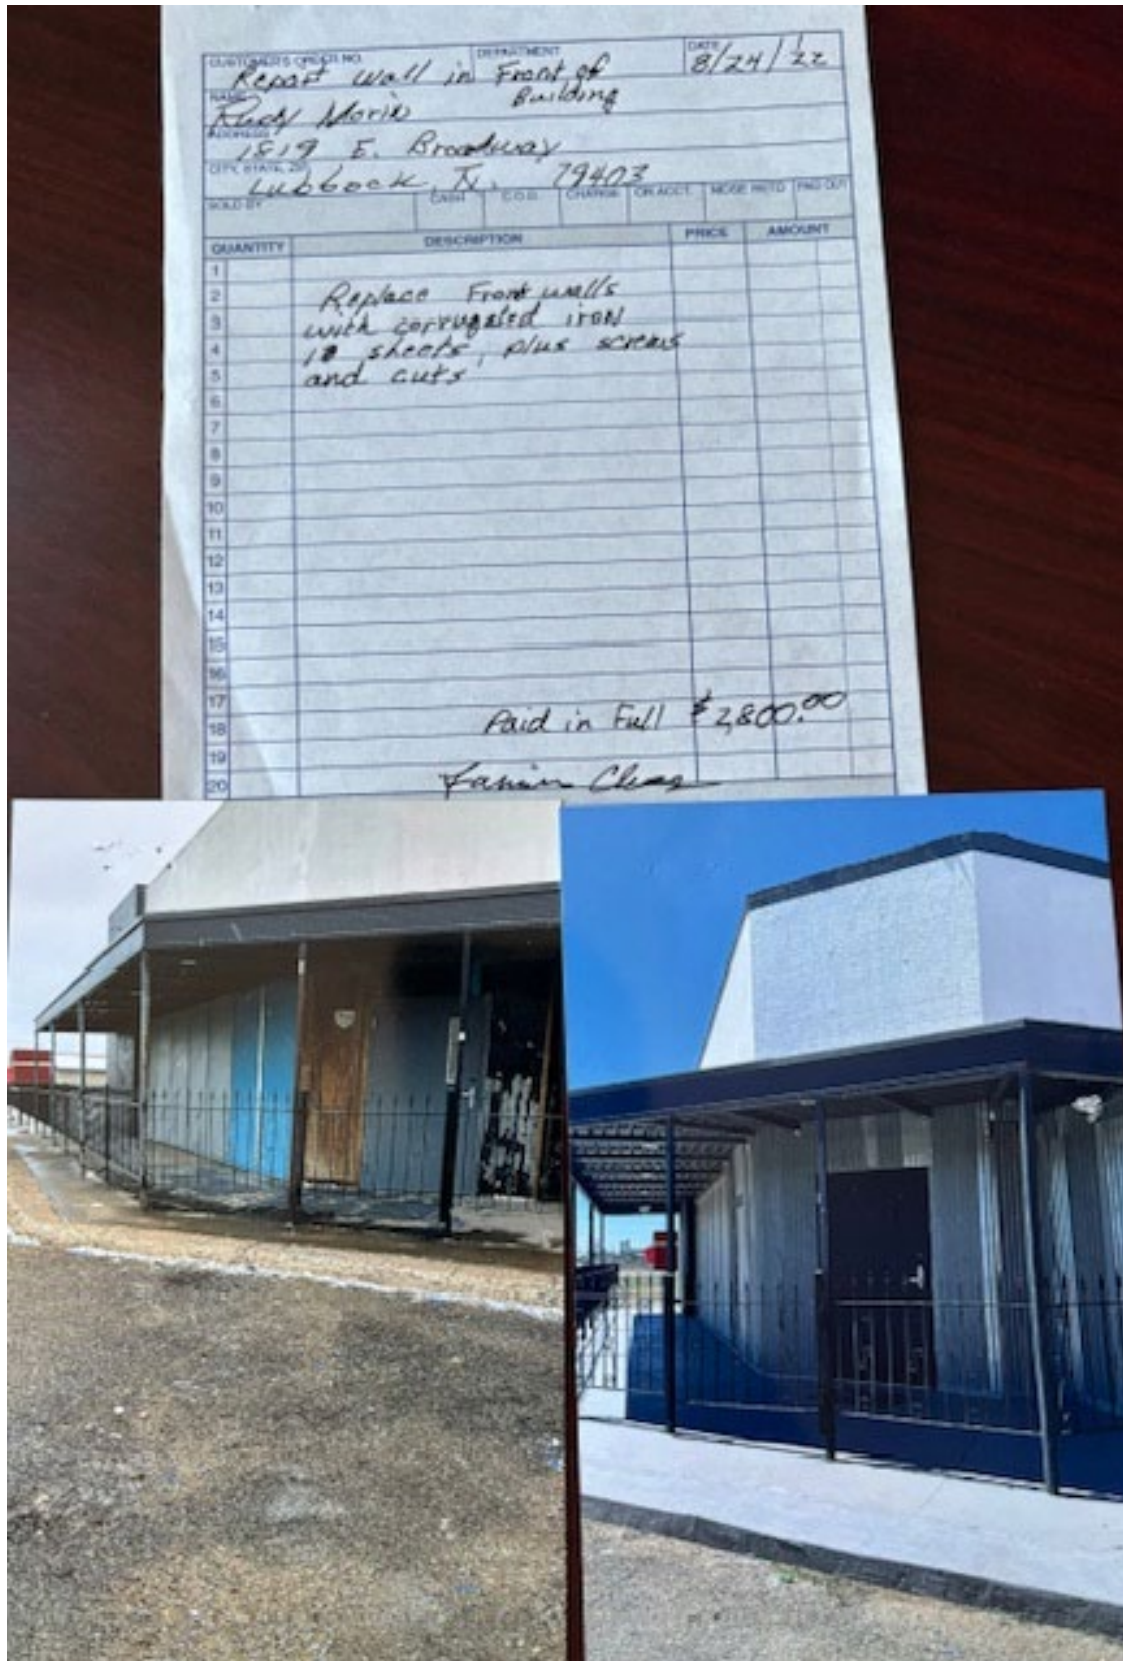 CUSTOMER'S ORDER NO. DEPARTMENT DATE 8/24/22
Repair wall in Front of
Building
NAME Rudy Morin
ADDRESS 1819 E. Broadway
CITY, STATE, ZIP Lubbock, Tx. 79403
SOLD BY CASH C.O.D. CHARGE ON ACCT. MDSE RETD PAID OUT
QUANTITY DESCRIPTION PRICE AMOUNT
1
2 Replace Front walls
3 with corrugated iron
4 sheets, plus screws
5 and cuts
6
7
8
9
10
11
12
13
14
15
16
17
18 Paid in Full $2,800.00
19
20